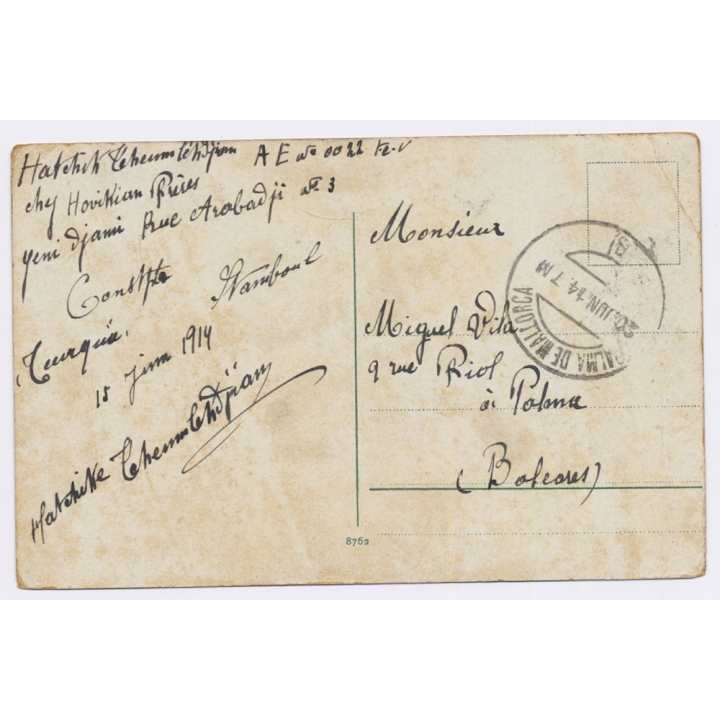 Hatchik Tcheumlehdjian A E No 0022
chez Hovikian Frères
Yeni Djami Rue Arabadji No 3
Constple Stamboul
Turquia.
15 Juin 1914
Hatchike Tcheumlehdjian
Monsieur
Miguel Vila
9 rue Riol
à Palma
(Baleares)
PALMA DE MALLORCA
20.JUN.14.7M
8762